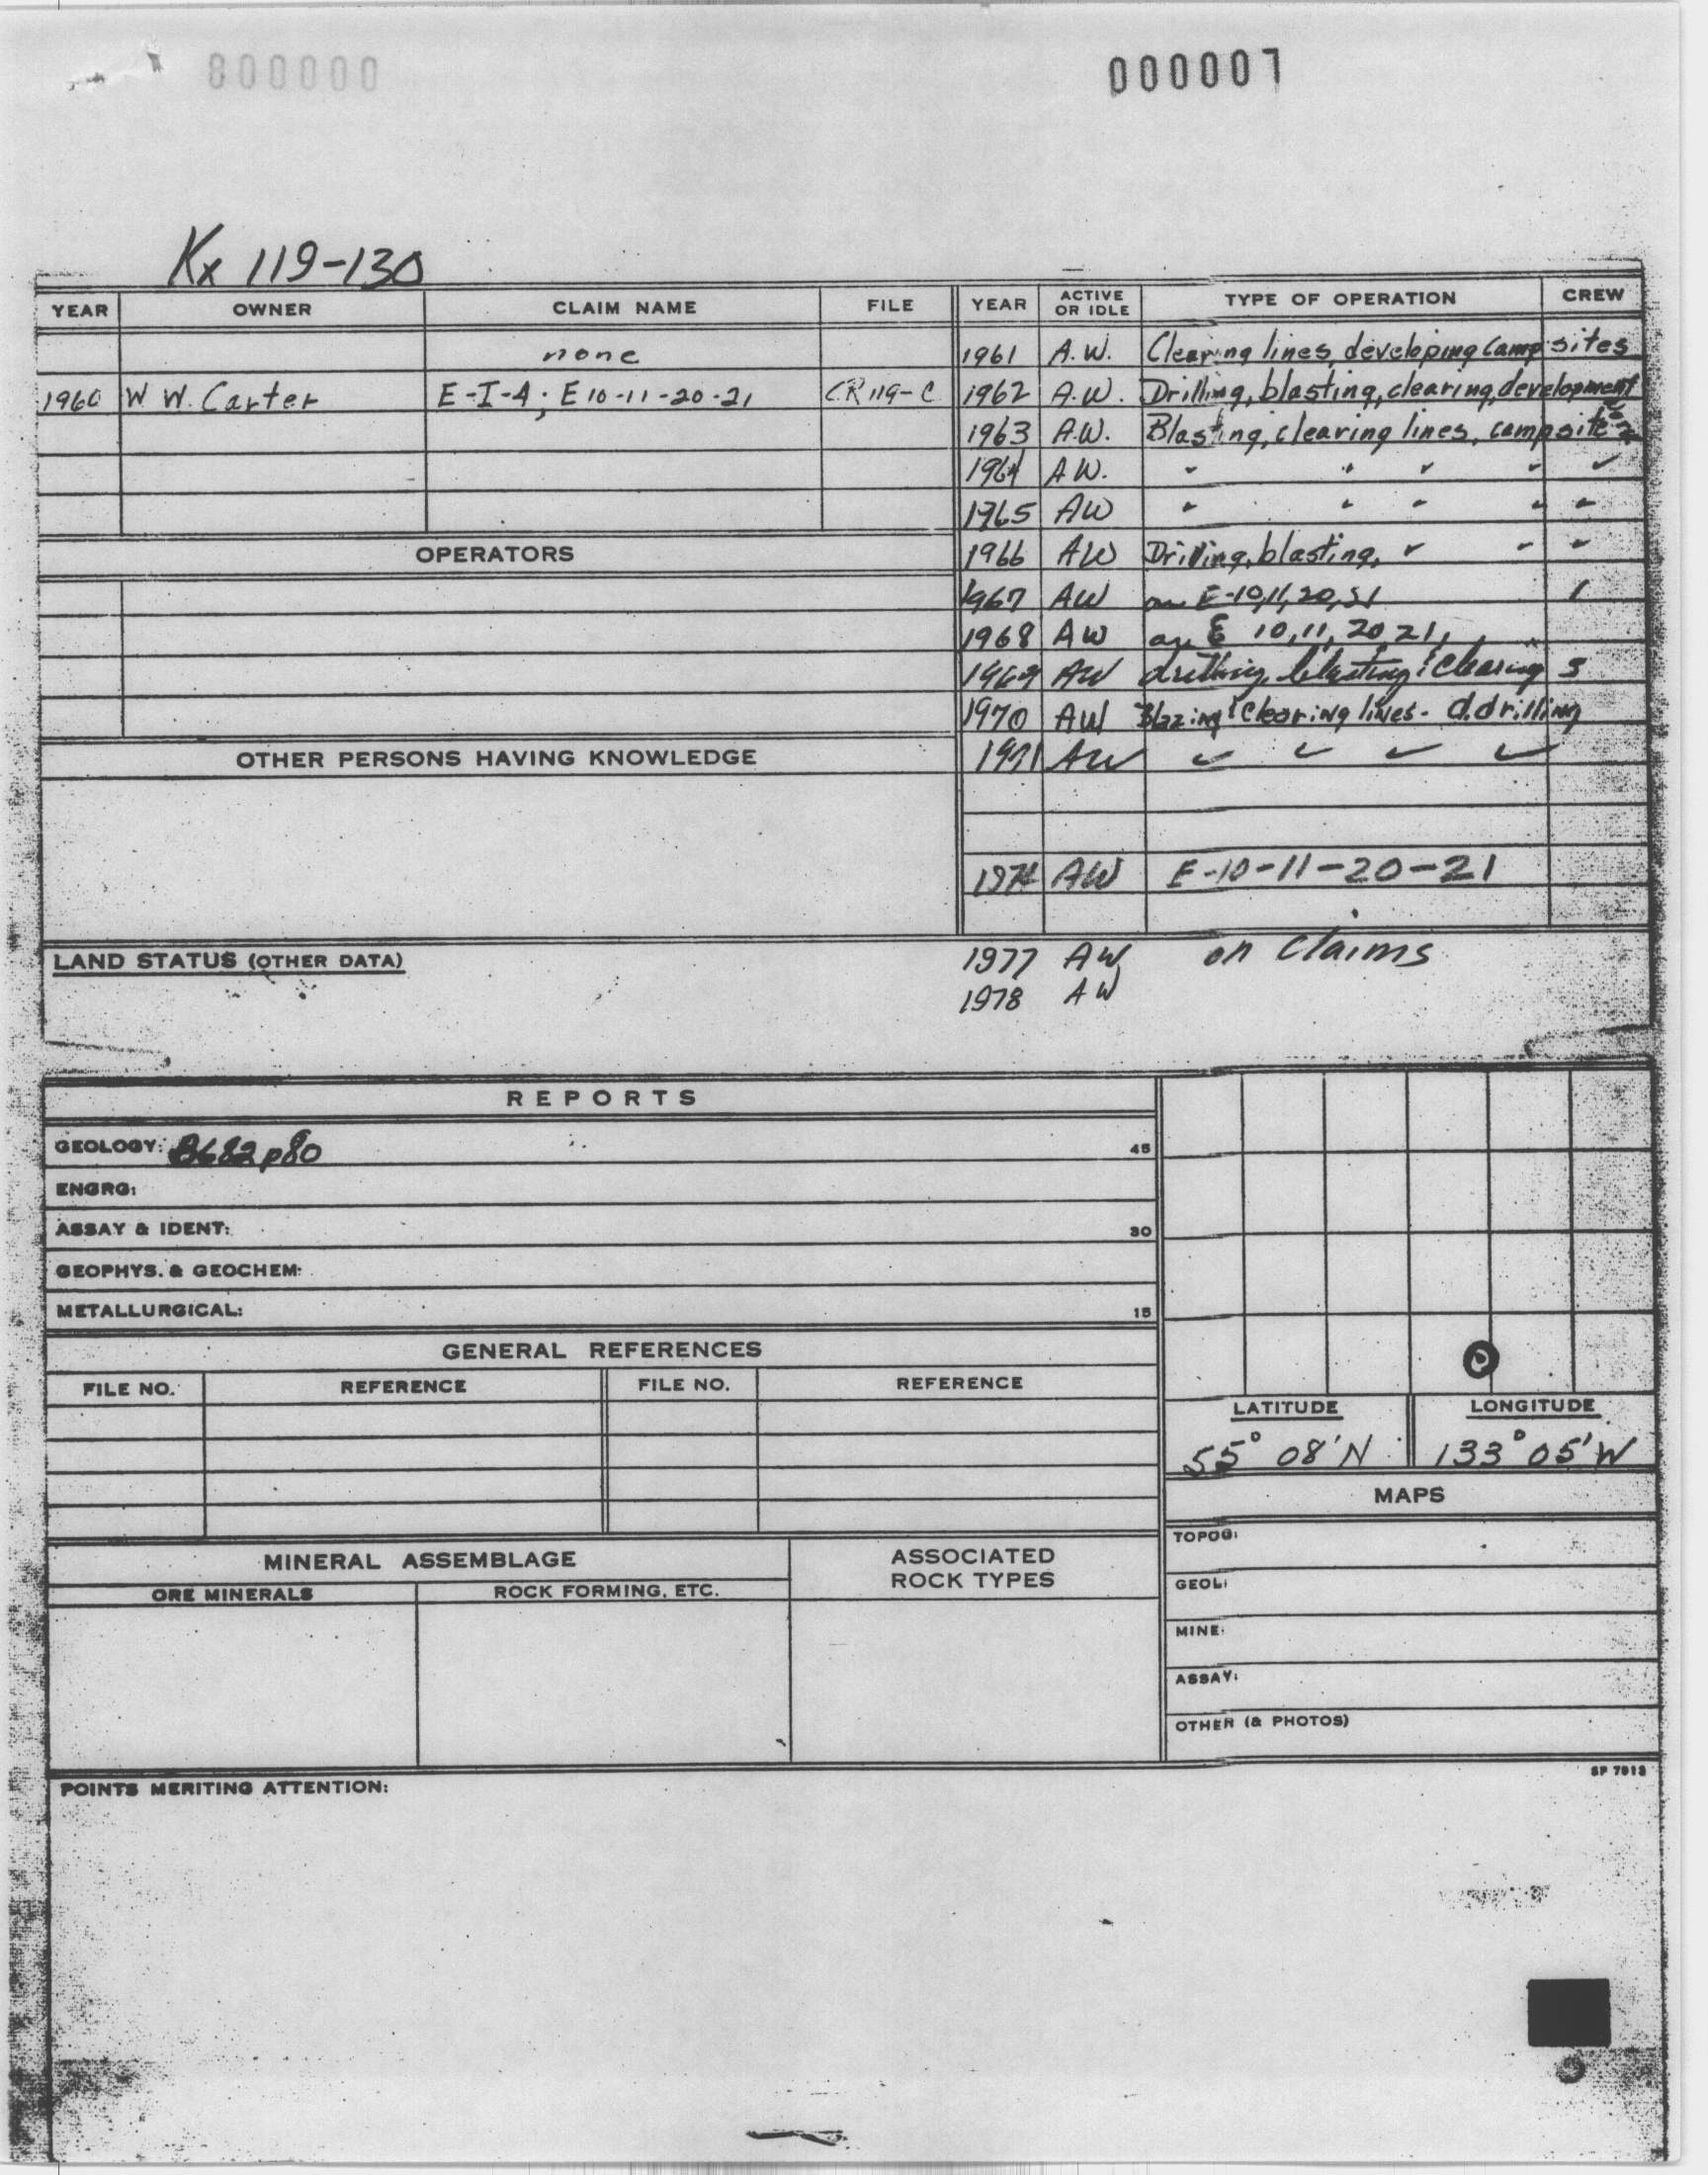 000000
000007
Kx 119-130
YEAR OWNER CLAIM NAME FILE
none
1960 W W. Carter E-I-A; E 10-11-20-21 CR 119-C
OPERATORS
OTHER PERSONS HAVING KNOWLEDGE
YEAR ACTIVE OR IDLE TYPE OF OPERATION CREW
1961 A.W. Clearing lines, developing camp sites
1962 A.W. Drilling, blasting, clearing, development
1963 A.W. Blasting, clearing lines, campsite 2
1964 A W. " " " " "
1965 AW " " " " "
1966 AW Drilling, blasting, " " "
1967 AW on E-10,11,20,21 1
1968 AW on E 10,11,20,21,
1969 AW drilling, blasting & clearing 3
1970 AW Blazing & Clearing lines - d.drilling
1971 AW " " " "
1974 AW E-10-11-20-21
1977 AW on claims
1978 AW
LAND STATUS (OTHER DATA)
REPORTS
GEOLOGY: B682 p80 45
ENGRG:
ASSAY & IDENT: 30
GEOPHYS. & GEOCHEM:
METALLURGICAL: 15
GENERAL REFERENCES
FILE NO. REFERENCE FILE NO. REFERENCE
LATITUDE LONGITUDE
55° 08' N 133° 05' W
MAPS
TOPOG:
GEOL:
MINE:
ASSAY:
OTHER (& PHOTOS)
MINERAL ASSEMBLAGE
ORE MINERALS ROCK FORMING, ETC.
ASSOCIATED
ROCK TYPES
SP 7913
POINTS MERITING ATTENTION: